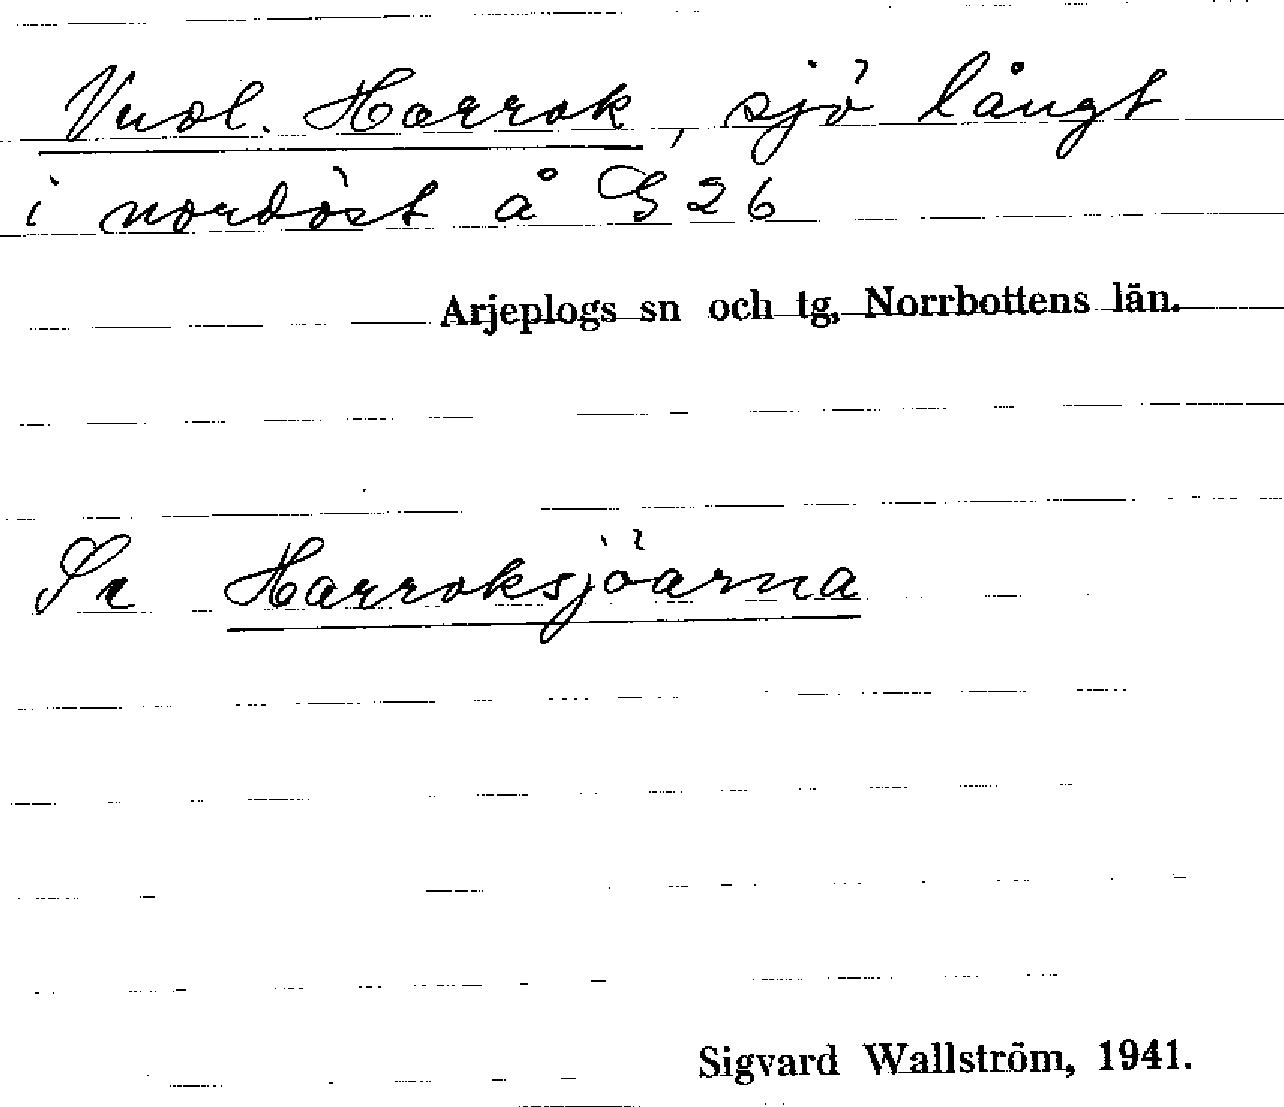 Vuol. Harrok, sjö långt
i nordöst å G 26
Arjeplogs sn och tg, Norrbottens län.
Se Harroksjöarna
Sigvard Wallström, 1941.